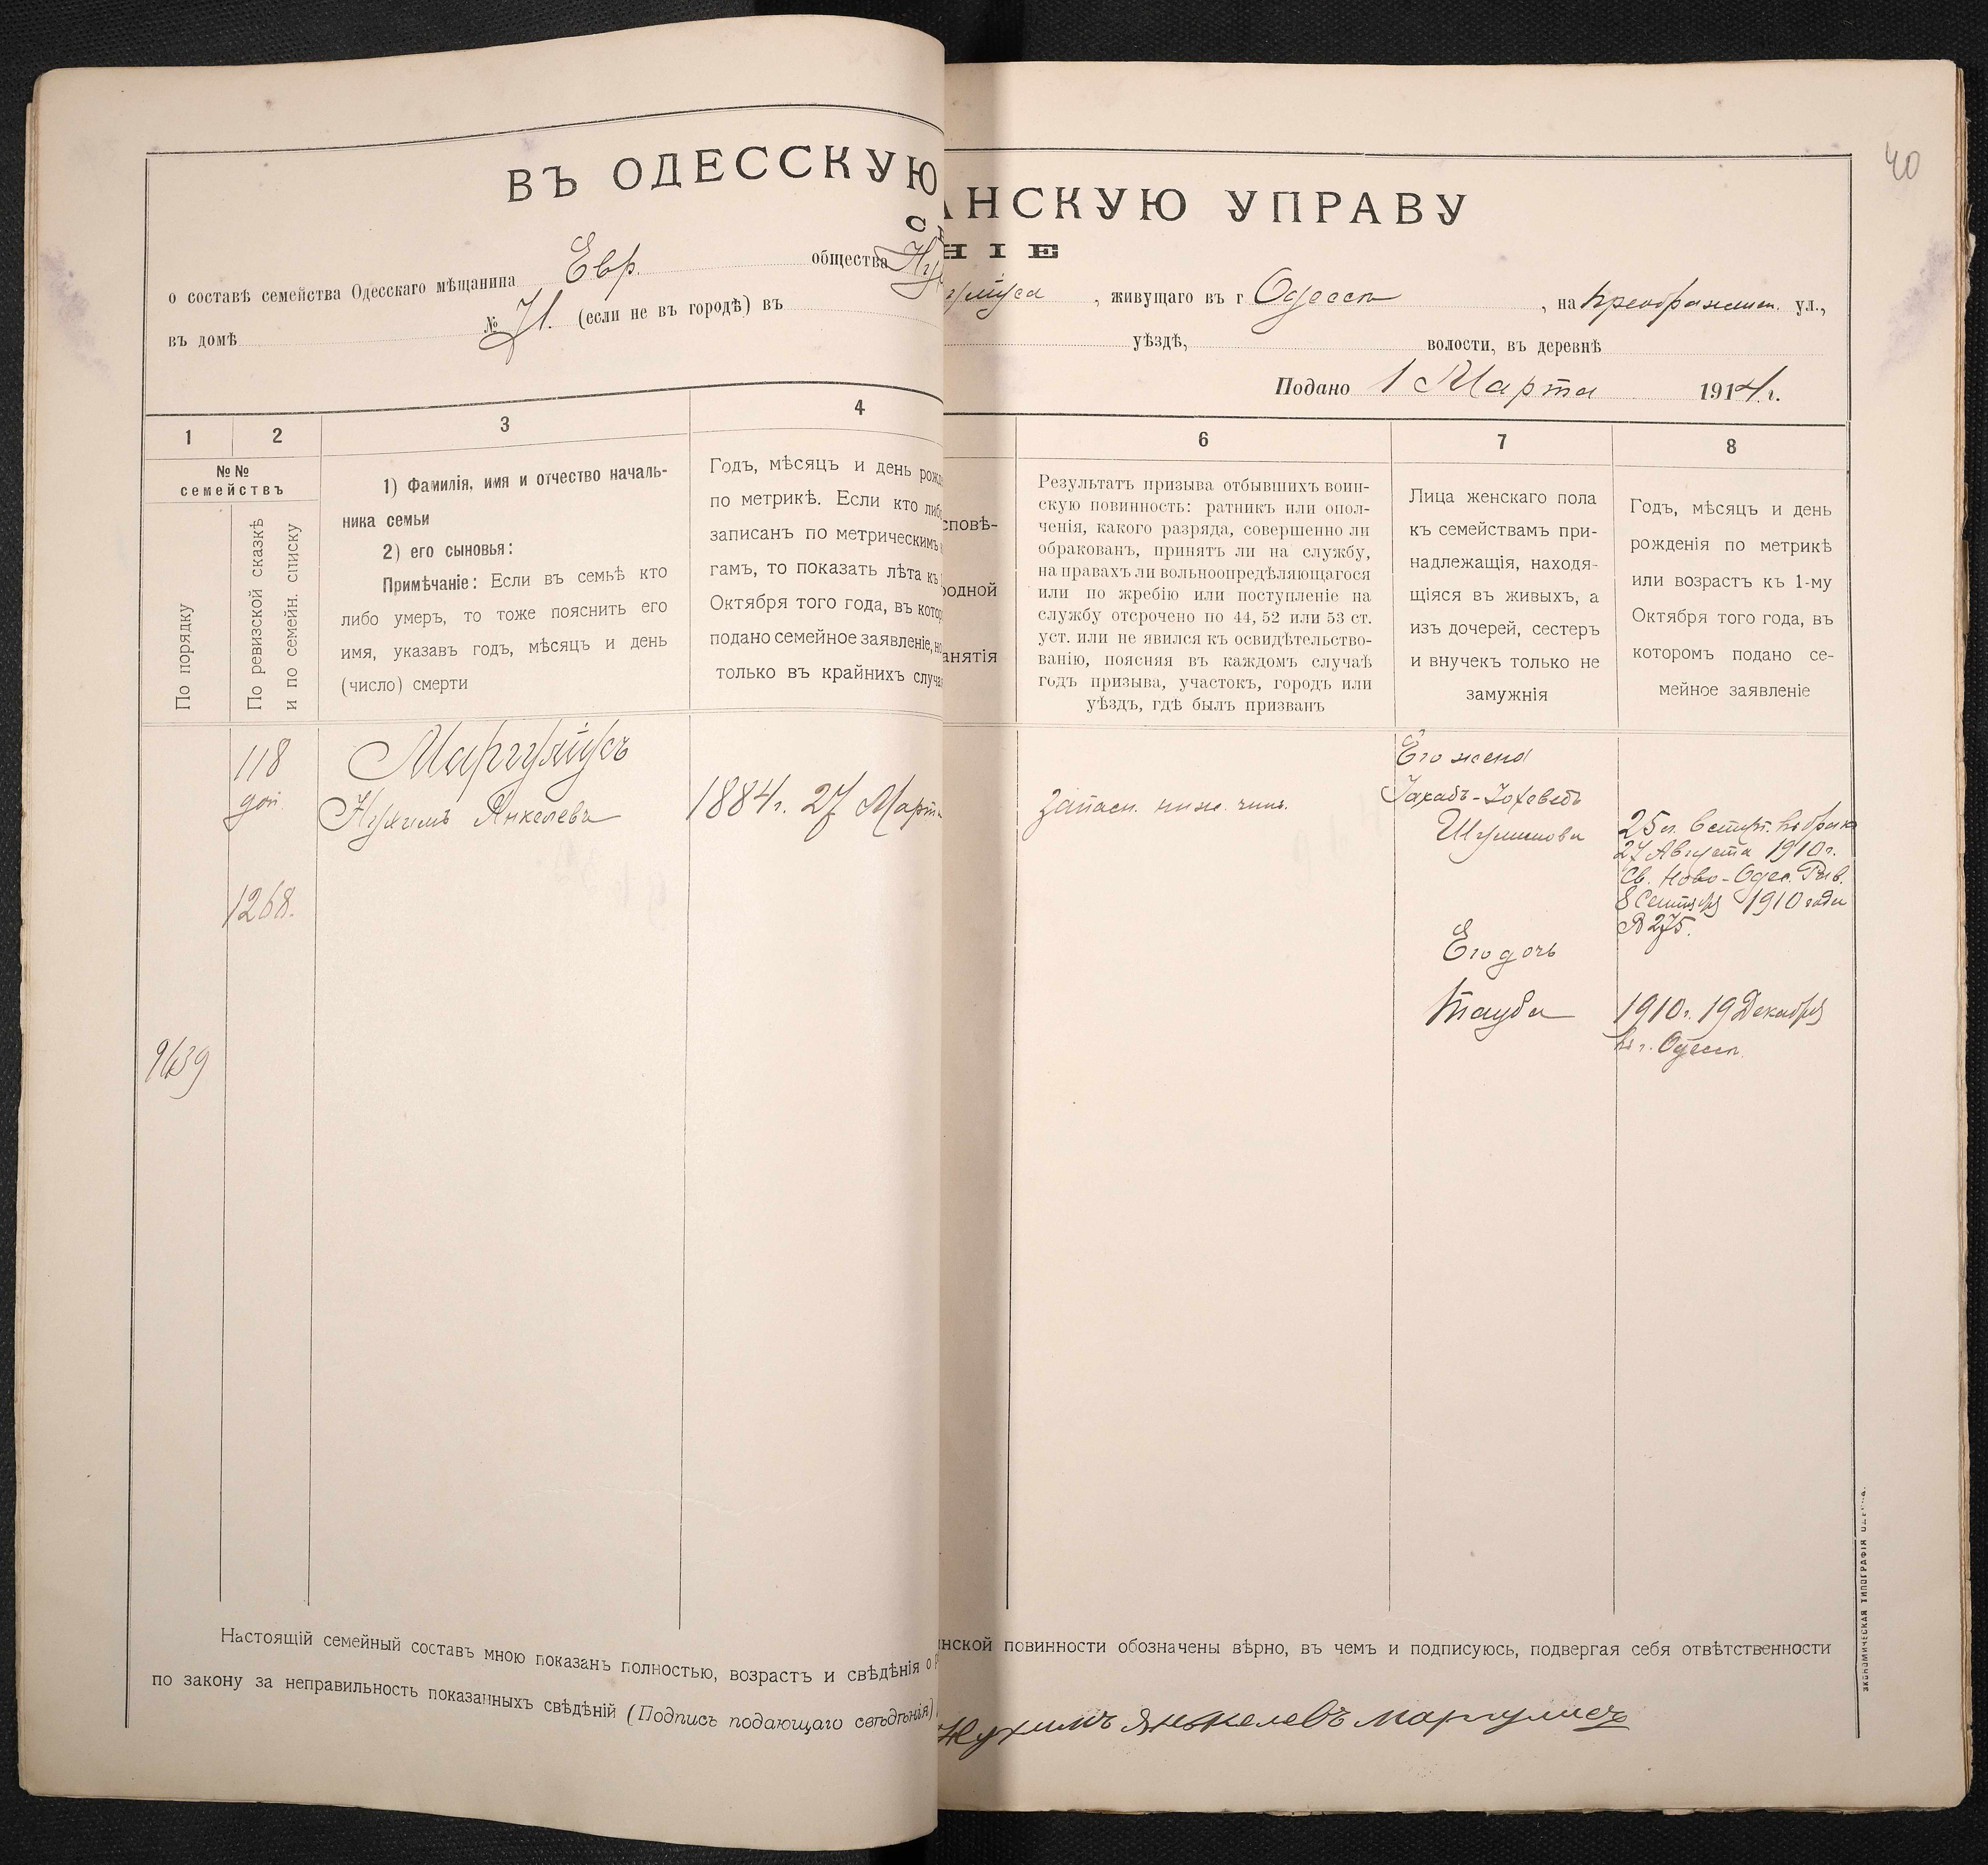 40
ВЪ ОДЕССКУЮ
АНСКУЮ УПРАВУ
НІЕ
о составѣ семейства Одесскаго мѣщанина Евр. общества
, живущаго въ г Одессѣ , на Преображен. ул.,
въ домѣ № 71. (если не въ городѣ) въ
уѣздѣ, волости, въ деревнѣ
Подано 1 Марта 1914 г.
1
2
3
4
6
7
8
№№
семействъ
По порядку
По ревизской сказкѣ
и по семейн. списку
1) Фамилія, имя и отчество началь-
ника семьи
2) его сыновья:
Примѣчаніе: Если въ семьѣ кто
либо умеръ, то тоже пояснить его
имя, указавъ годъ, мѣсяцъ и день
(число) смерти
Годъ, мѣсяцъ и день рожд
по метрикѣ. Если кто либо
записанъ по метрическимъ
гамъ, то показать лѣта къ
Октября того года, въ котор
подано семейное заявленіе, но
только въ крайнихъ случа
сповѣ-
родной
анятія
Результатъ призыва отбывшихъ воин-
скую повинность: ратникъ или опол-
ченія, какого разряда, совершенно ли
обракованъ, принятъ ли на службу,
на правахъ ли вольноопредѣляющагося
или по жребію или поступленіе на
службу отсрочено по 44, 52 или 53 ст.
уст. или не явился къ освидѣтельство-
ванію, поясняя въ каждомъ случаѣ
годъ призыва, участокъ, городъ или
уѣздъ, гдѣ былъ призванъ
Лица женскаго пола
къ семействамъ при-
надлежащія, находя-
щіяся въ живыхъ, а
изъ дочерей, сестеръ
и внучекъ только не
замужнія
Годъ, мѣсяцъ и день
рожденія по метрикѣ
или возрастъ къ 1-му
Октября того года, въ
которомъ подано се-
мейное заявленіе
118
доп.
Маргулисъ
Нухимъ Янкелевъ
1884 г. 27 Март
запасн. ниж. чинъ.
Его жена
Іохевedъ
Шулимова
25 л. вступ. въ бракъ
27 Августа 1910 г.
Св. Ново-Одес. Рав.
8 Сентября 1910 года
№ 275.
1268.
Его дочь
Тауба
1910 г. 19 Декабря
въ г. Одессѣ
9639
Настоящій семейный составъ мною показанъ полностью, возрастъ и свѣдѣнія о
инской повинности обозначены вѣрно, въ чемъ и подписуюсь, подвергая себя отвѣтственности
по закону за неправильность показанныхъ свѣдѣній (Подпись подающаго свѣдѣнія)
Нухимъ Янкелевъ Маргулисъ